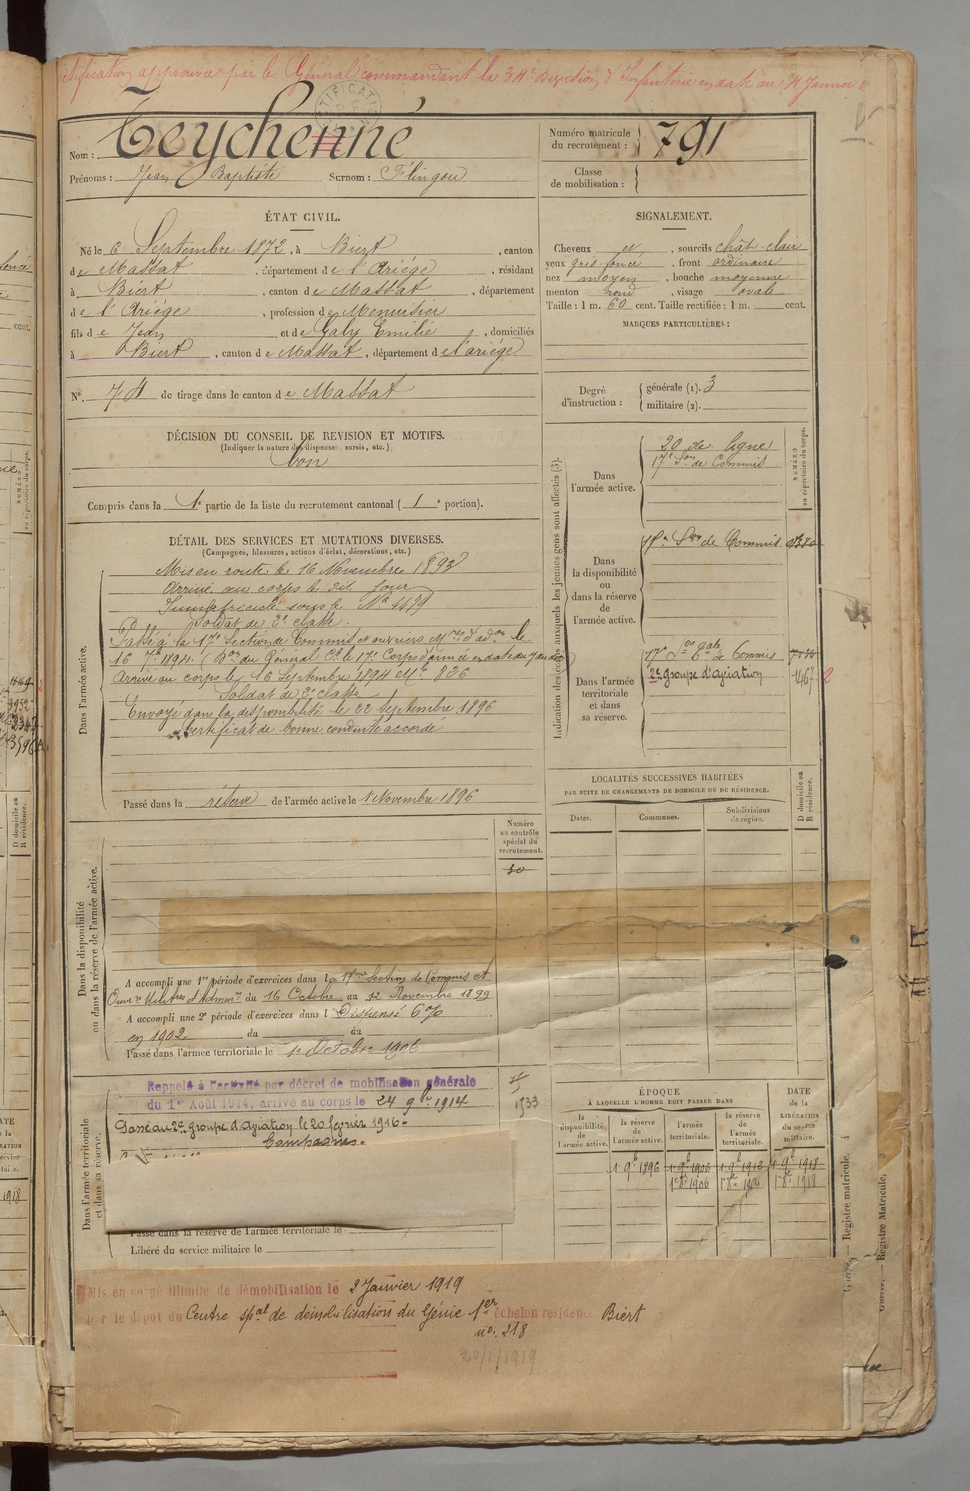 rectification approuvée par le Général commandant la 34e Direction d'Infanterie en date du 4 Janvier
Nom : Teychenné
Prénoms : Jean Baptiste Surnom : Flingou
Numéro matricule du recrutement : 791
Classe de mobilisation :
ÉTAT CIVIL.
Né le 6 Septembre 1872, à Biert, canton
de Massat, département de l'Ariége, résidant
à Biert, canton de Massat, département
de l'Ariége, profession de Menuisier
fils de Jean et de Galy Emilie, domiciliés
à Biert, canton de Massat, département de l'ariége
N°. 74 de tirage dans le canton de Massat
DÉCISION DU CONSEIL DE REVISION ET MOTIFS.
(Indiquer la nature des dispenses, sursis, etc.)
bon
Compris dans la 1e partie de la liste du recrutement cantonal (1e portion).
SIGNALEMENT.
Cheveux et, sourcils chât-clair
yeux gris foncé, front ordinaire
nez moyen, bouche moyenne
menton rond, visage ovale
Taille : 1 m. 60 cent. Taille rectifiée : 1 m. cent.
MARQUES PARTICULIÈRES :
Degré d'instruction : générale (1). 3
militaire (2).
DÉTAIL DES SERVICES ET MUTATIONS DIVERSES.
(Campagnes, blessures, actions d'éclat, décorations, etc.)
Dans l'armée active.
Mis en route le 16 Novembre 1893
Arrivé au corps le dit jour
Immatriculé sous le N° 4479
Soldat de 2e classe.
Passé à la 17e Section de Commis et ouvriers Mres d'adon le
16 7bre 1894. (Bon du Général Ct le 17e Corps d'armée en date du
Arrivé au corps le 16 Septembre 1894 Mle 836
Soldat de 2e classe
Envoyé dans la disponibilité le 22 Septembre 1896
Certificat de bonne conduite accordé
Passé dans la réserve de l'armée active le 1 Novembre 1896
Indication des corps auxquels les jeunes gens sont affectés (3).
NUMÉRO au répertoire du corps.
Dans l'armée active.
20 de ligne
17e Son de Commis
Dans la disponibilité ou dans la réserve de l'armée active.
17e Son de Commis
Dans l'armée territoriale et dans sa réserve.
17e Son Gale de Commis
2e groupe d'aviation 1467 2
LOCALITÉS SUCCESSIVES HABITÉES
PAR SUITE DE CHANGEMENTS DE DOMICILE OU DE RÉSIDENCE.
Dates. Communes. Subdivisions de région. D domicile ou R résidence.
Numéro au contrôle spécial du recrutement.
30
Dans la disponibilité ou dans la réserve de l'armée active.
A accompli une 1re période d'exercices dans la 17me Section de Commis et
Ouvrs Militres d'Admon du 16 Octobre au 12 Novembre 1899
A accompli une 2e période d'exercices dans l Dispensé 6%
en 1902 du au
Passé dans l'armée territoriale le 1er Octobre 1906
Dans l'armée territoriale et dans sa réserve.
Rappelé à l'activité par décret de mobilisation générale
du 1er Août 1914, arrivé au corps le 24 9bre 1914
1533
Passé au 2e groupe d'aviation le 20 février 1916.
Campagnes.
Passé dans la réserve de l'armée territoriale le
Libéré du service militaire le
ÉPOQUE
À LAQUELLE L'HOMME DOIT PASSER DANS
la disponibilité de l'armée active. la réserve de l'armée active. l'armée territoriale. la réserve de l'armée territoriale.
DATE de la LIBÉRATION du service militaire.
1 9b 1896 1 9b 1906 1 9b 1912 1 9b 1918
1 8b 1906 1 8b 1912 1 8b 1918
Mis en congé illimité de démobilisation le 2 Janvier 1919
par le dépôt du Centre spal de démobilisation du Génie 1er échelon résidence Biert
no. 218
30/1/1919
Registre matricule.
Registre Matricule.